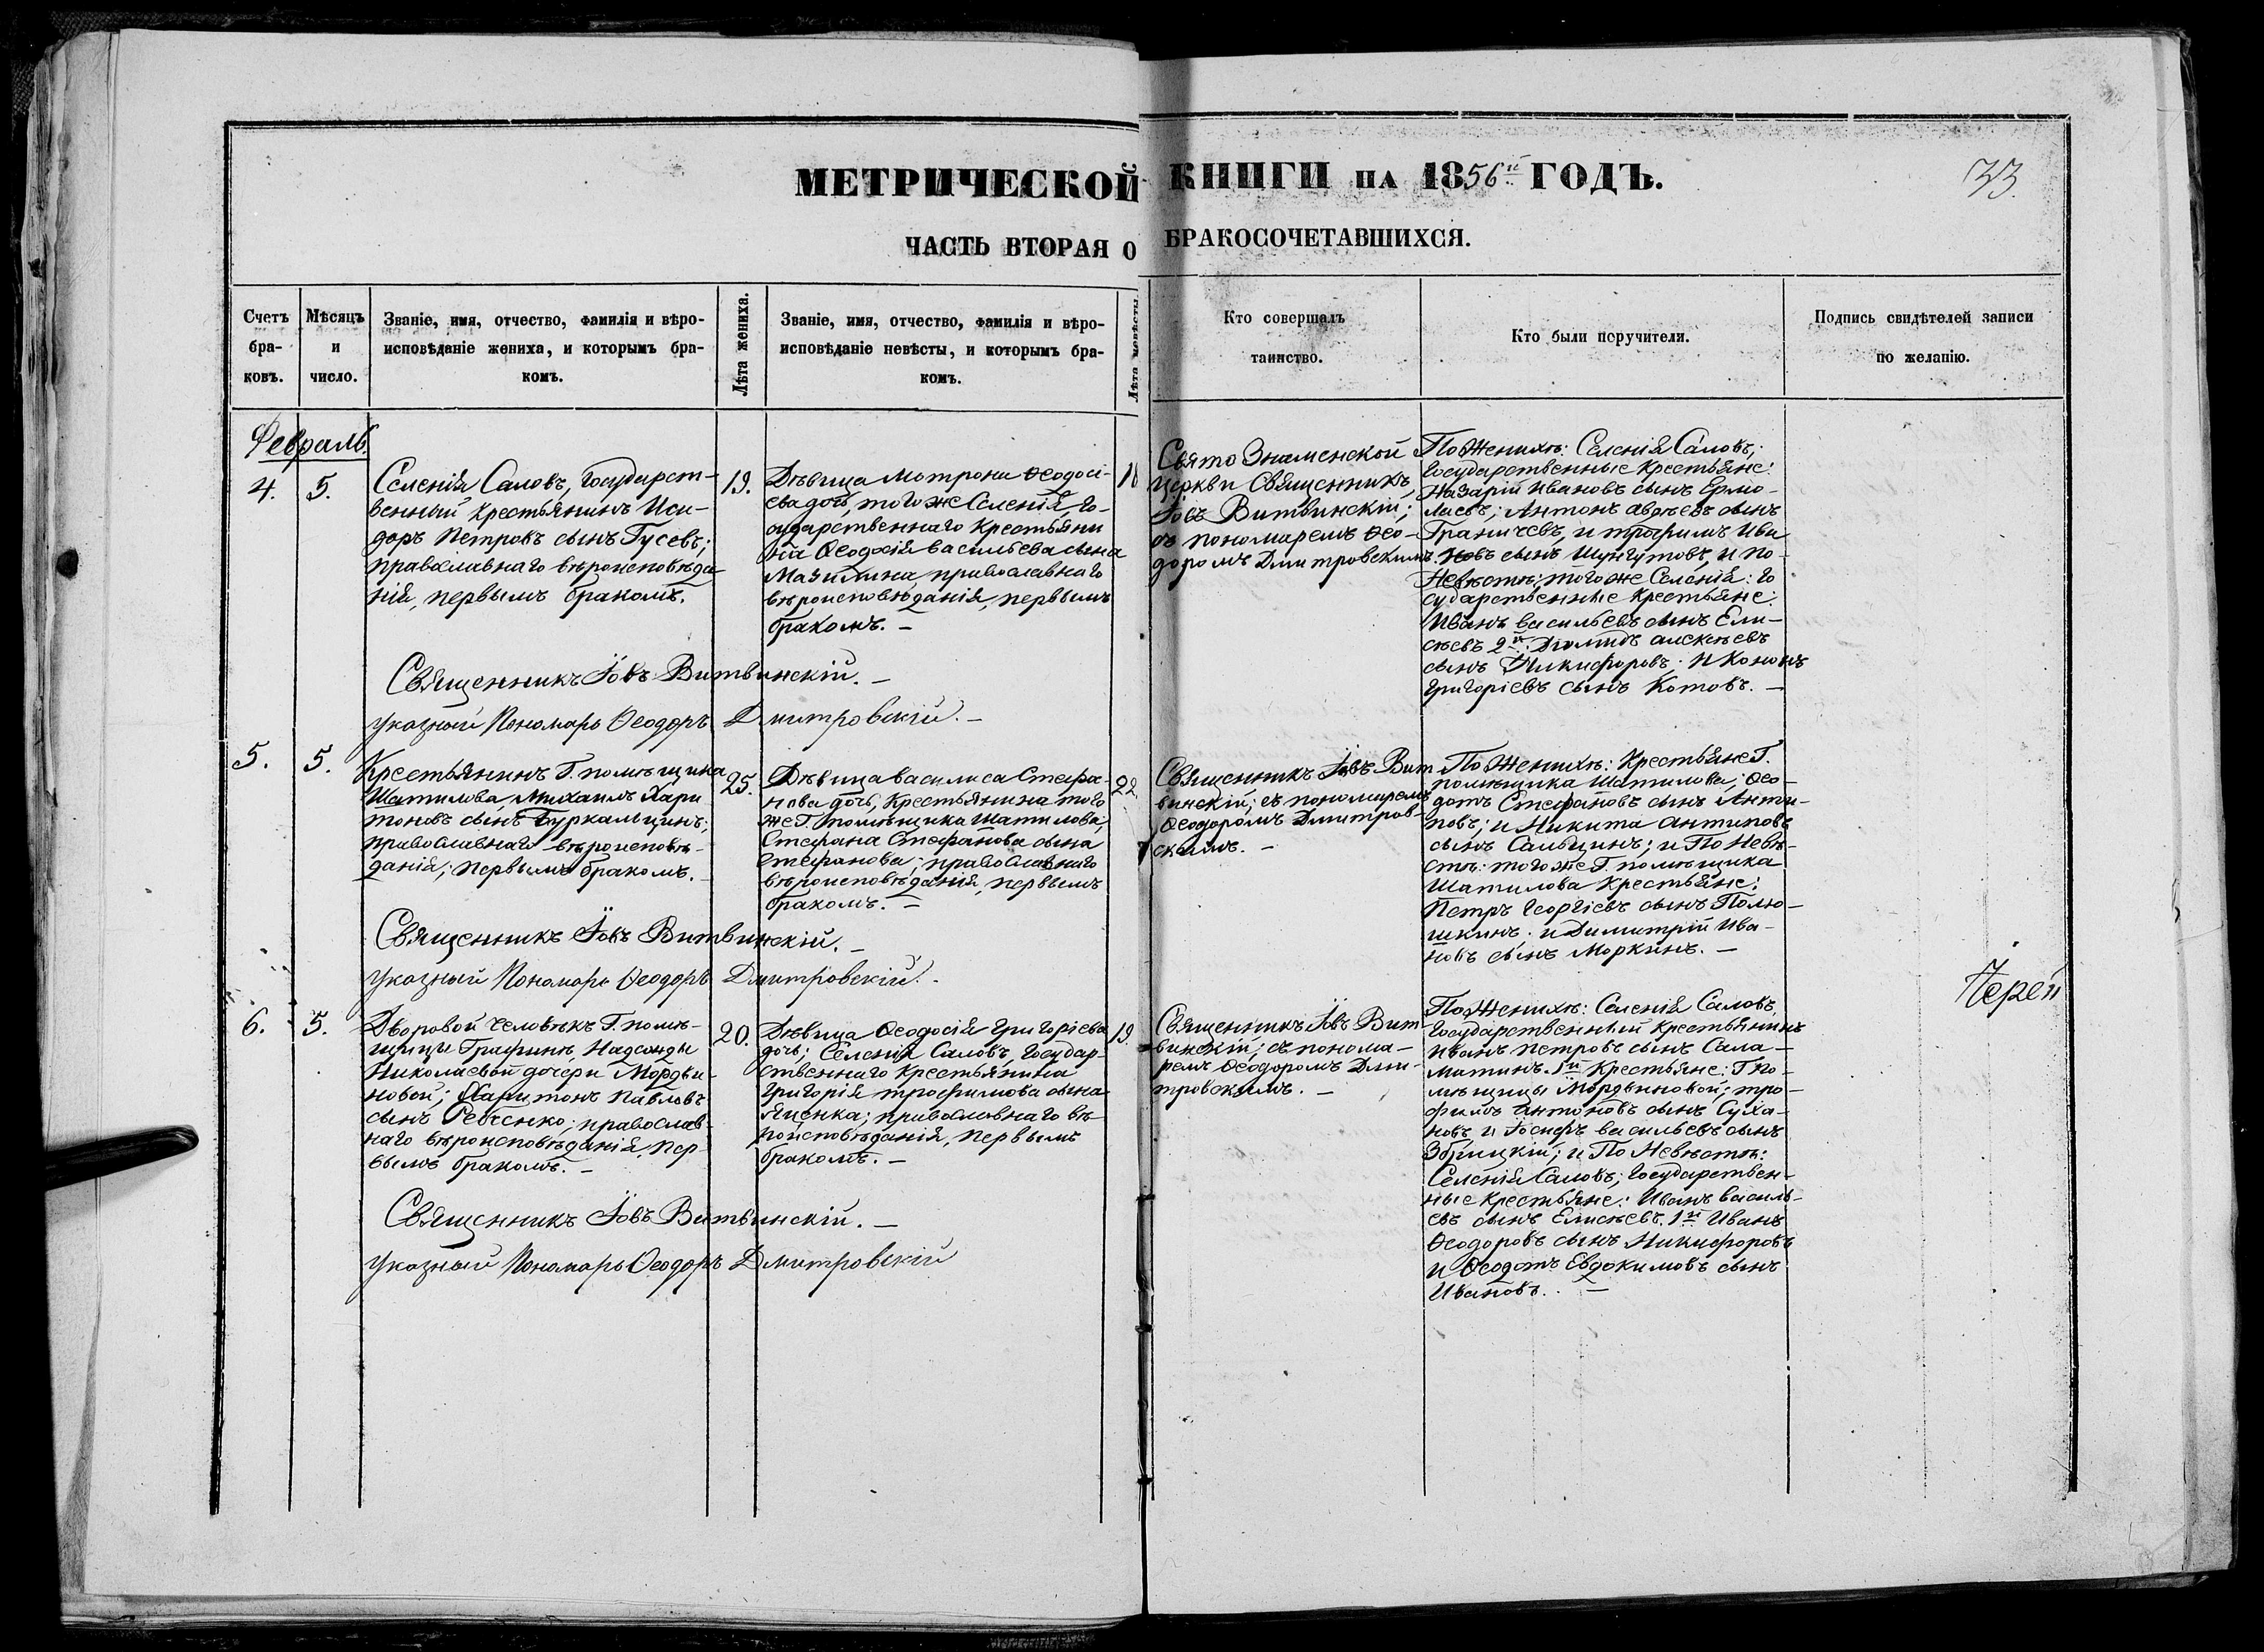 МЕТРИЧЕСКОЙ КНИГИ НА 1856й ГОДЪ.
33.
ЧАСТЬ ВТОРАЯ О БРАКОСОЧЕТАВШИХСЯ.
Счетъ
бра-
ковъ.
Мѣсяцъ
и
число.
Званіе, имя, отчество, фамилія и вѣро-
исповѣданіе жениха, и которымъ бра-
комъ.
Лѣта жениха.
Званіе, имя, отчество, фамилія и вѣро-
исповѣданіе невѣсты, и которымъ бра-
комъ.
Лѣта невѣсты.
Кто совершалъ
таинство.
Кто были поручители.
Подпись свидѣтелей записи
по желанію.
Февраль.
4.
5.
Селенія Саловъ, Государст-
венный Крестьянинъ Иси-
доръ Петровъ сынъ Гусевъ;
православнаго вѣроисповѣда-
нія, первымъ бракомъ.
19.
Дѣвица Матрона Ѳеодосі-
ева дочь, того же Селенія, Го-
сударственнаго Крестьяни
на Ѳеодосія Васильева сына
Мазилина, православнаго
вѣроисповѣданія, первымъ
бракомъ. —
18
Свято Знаменской
Церкви Священникъ,
Іовъ Витвинскій;
съ пономаремъ Ѳео-
доромъ Дмитровскимъ.
По Женихѣ: Селенія Саловъ;
Государственные Крестьяне:
Назарій Ивановъ сынъ Ермо-
лаевъ; Антонъ Авдѣевъ сынъ
Граничевъ, и Трофимъ Ива
новъ сынъ Шунгутовъ, и по-
Невѣстѣ: того же Селенія: Го
сударственные Крестьяне:
Иванъ Васильевъ сынъ Ели-
сѣевъ 2й Діомидъ Алексѣевъ
сынъ Никифоровъ; и Кононъ
Григоріевъ сынъ Котовъ. —
Священникъ Іовъ Витвинскій. —
Указный Пономарь Ѳеодоръ Дмитровскій. —
5.
5.
Крестьянинъ Г. помѣщика
Шатилова, Михаилъ Хари
тоновъ сынъ Буркальцинъ;
православнаго вѣроисповѣ-
данія; первымъ бракомъ. —
25.
Дѣвица Василиса Стефа-
нова дочь, Крестьянина того
же Г. помѣщика Шатилова,
Стефана Стефанова сына
Стефанова; православнаго
вѣроисповѣданія, первымъ
бракомъ. —
22
Священникъ Іовъ Вит-
винскій; съ пономаремъ
Ѳеодоромъ Дмитров-
скимъ. —
По Женихѣ: Крестьяне Г.
помѣщика Шатилова; Ѳео-
дотъ Стефановъ сынъ Анти-
повъ; и Никита Антиповъ
сынъ Сальцинъ; и По Невѣ-
стѣ: того же Г. помѣщика
Шатилова Крестьяне:
Петръ Георгіевъ сынъ Полю-
шкинъ. и Димитрій Ива-
новъ сынъ Моркинъ. —
Священникъ Іовъ Витвинскій. —
Указный Пономарь Ѳеодоръ Дмитровскій. -
Черей
6.
5.
Дворовой человѣкъ Г. помѣ-
щицы Графини, Надежды
Николаевой дочери Мордви-
новой; Харитонъ Павловъ
сынъ Ребченко; православ-
наго вѣроисповѣданія, пер-
вымъ бракомъ. —
20.
Дѣвица Ѳеодосія Григоріева
дочь; Селенія Саловъ, Государ-
ственнаго Крестьянина
Григорія Трофимова сына
Яценка; православнаго вѣ-
роисповѣданія, первымъ
бракомъ. —
19.
Священникъ Іовъ Вит-
винскій; съ понома-
ремъ Ѳеодоромъ Дми-
тровскимъ. —
По Женихѣ: Селенія Саловъ,
Государственный Крестьянинъ
Иванъ Петровъ сынъ Сала-
матинъ. 1й Крестьяне: Г. По-
мѣщицы Мордвиновой; Тро-
фимъ Антоновъ сынъ Суха-
новъ, и Іосифъ Васильевъ сынъ
Збрицкій; и По Невѣстѣ:
Селенія Саловъ; Государствен-
ные Крестьяне: Иванъ Василь-
евъ сынъ Елисѣевъ. 1й Иванъ
Ѳеодоровъ сынъ Никифоровъ
и Ѳеодотъ Евдокимовъ сынъ
Ивановъ. . —
Священникъ Іовъ Витвинскій. —
Указный Пономарь Ѳеодоръ Дмитровскій